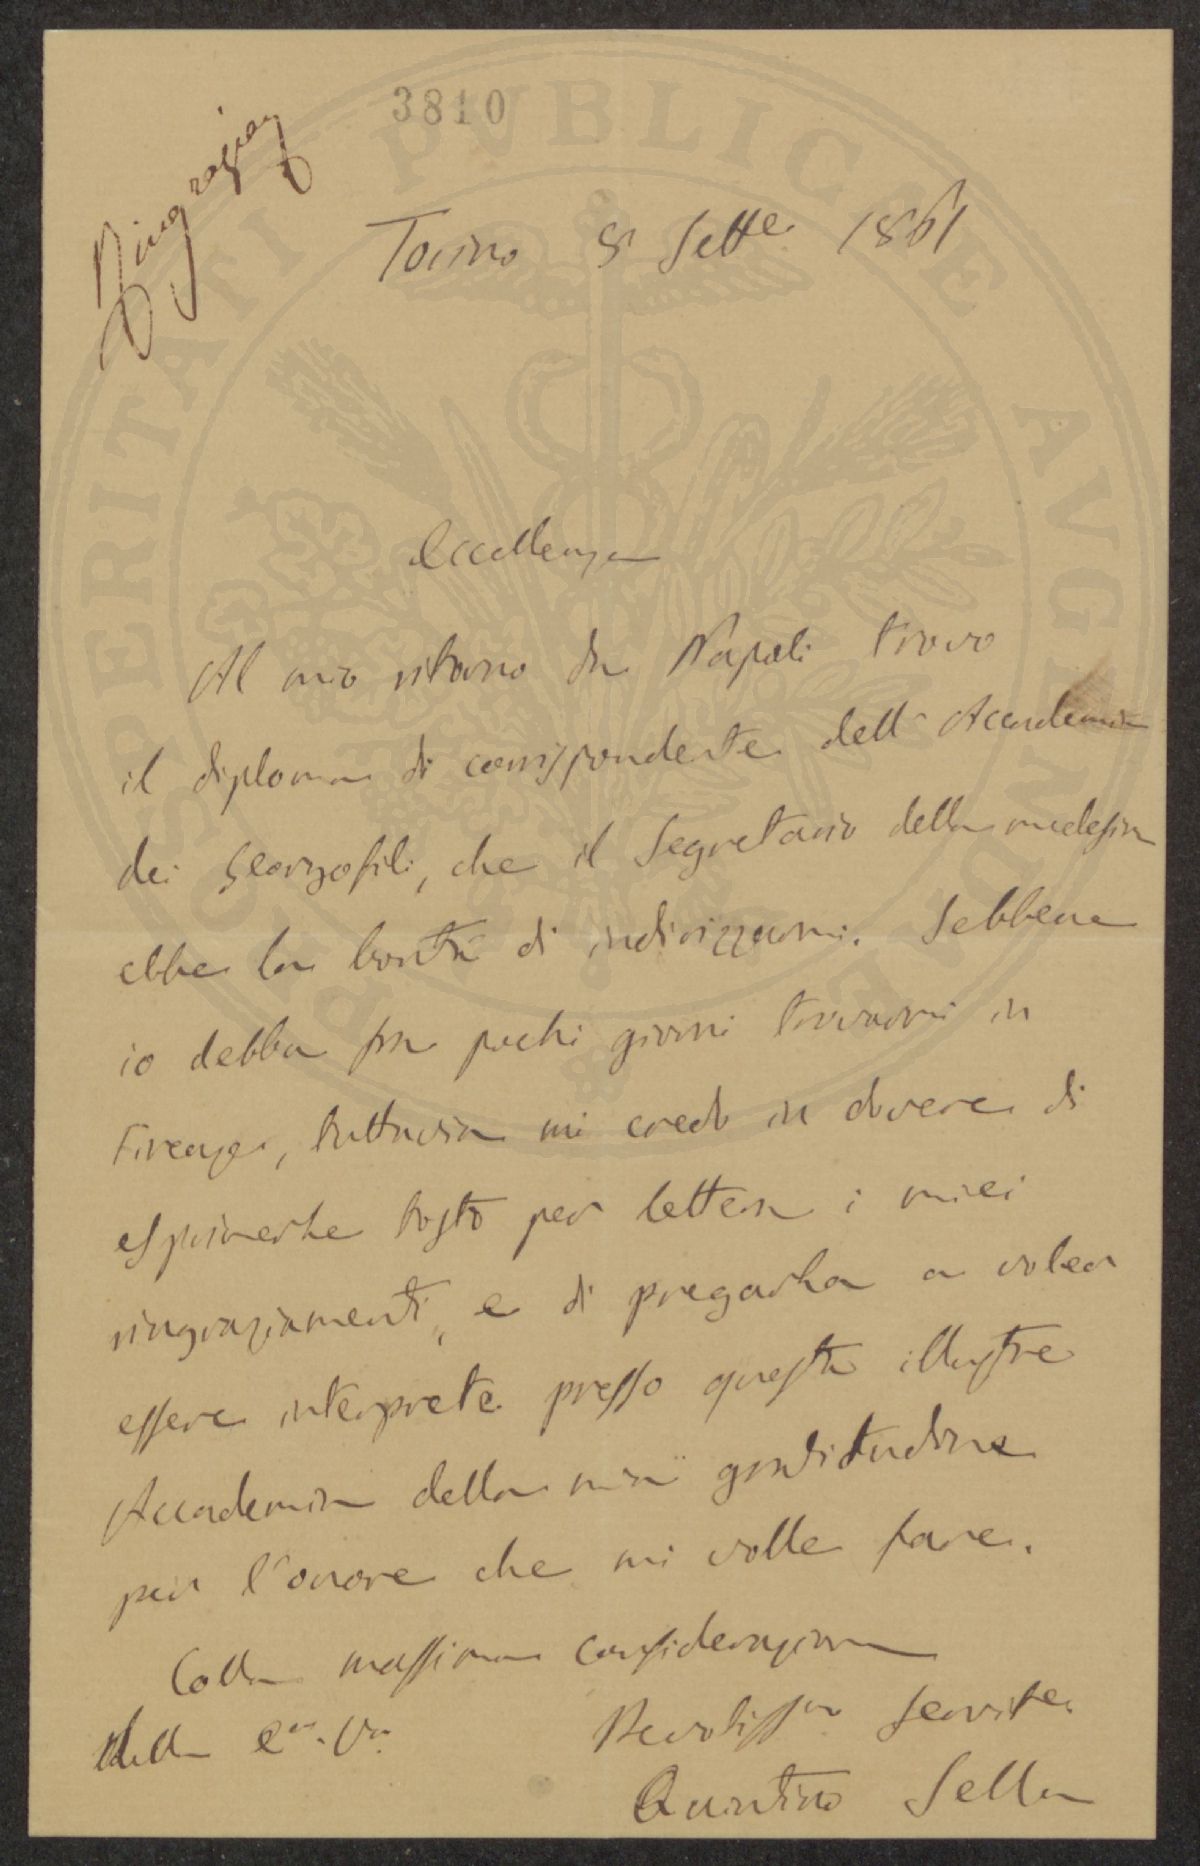 3810
Torino 8 Sette 1861
Eccellenza
Al mio ritorno da Napoli trovo
il diploma di corrispondente dell'Accademia
dei Georgofili, che il Segretario della medesima
ebbe la bontà di indirizzarmi. Sebbene
io debba fra pochi giorni trovarmi in
Firenze, tuttavia mi credo in dovere di
esprimerle tosto per lettera i miei
ringraziamenti, e di pregarla a voler
essere interprete presso questa illustre
Accademia della mia gratitudine
per l'onore che mi volle fare.
Colla massima considerazione
della E. V.
Servite
Quintino Sella
PROSPERITATI PVBLICAE AVGENDAE